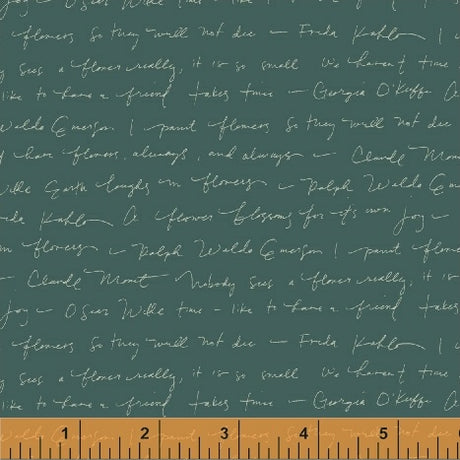 flowers So they will not die — Frida Kahlo I
y sees a flower really, it is so small We haven't time
like to have a friend takes time — Georgia O'Keeffe A
Waldo Emerson I paint flowers So they will not die
have flowers, always, and always — Claude Monet
Wilde Earth laughs in flowers — Ralph Waldo Em
da Kahlo A flower blossoms for it's own joy —
in flowers — Ralph Waldo Emerson I paint flowe
— Claude Monet Nobody sees a flower really, it is
Joy — Oscar Wilde time — like to have a friend takes
flowers So they will not die — Frida Kahlo I
y sees a flower really, it is so small We haven't time
like to have a friend takes time — Georgia O'Keeffe A
Waldo Emerson I paint flowers So they will not die
1 2 3 4 5